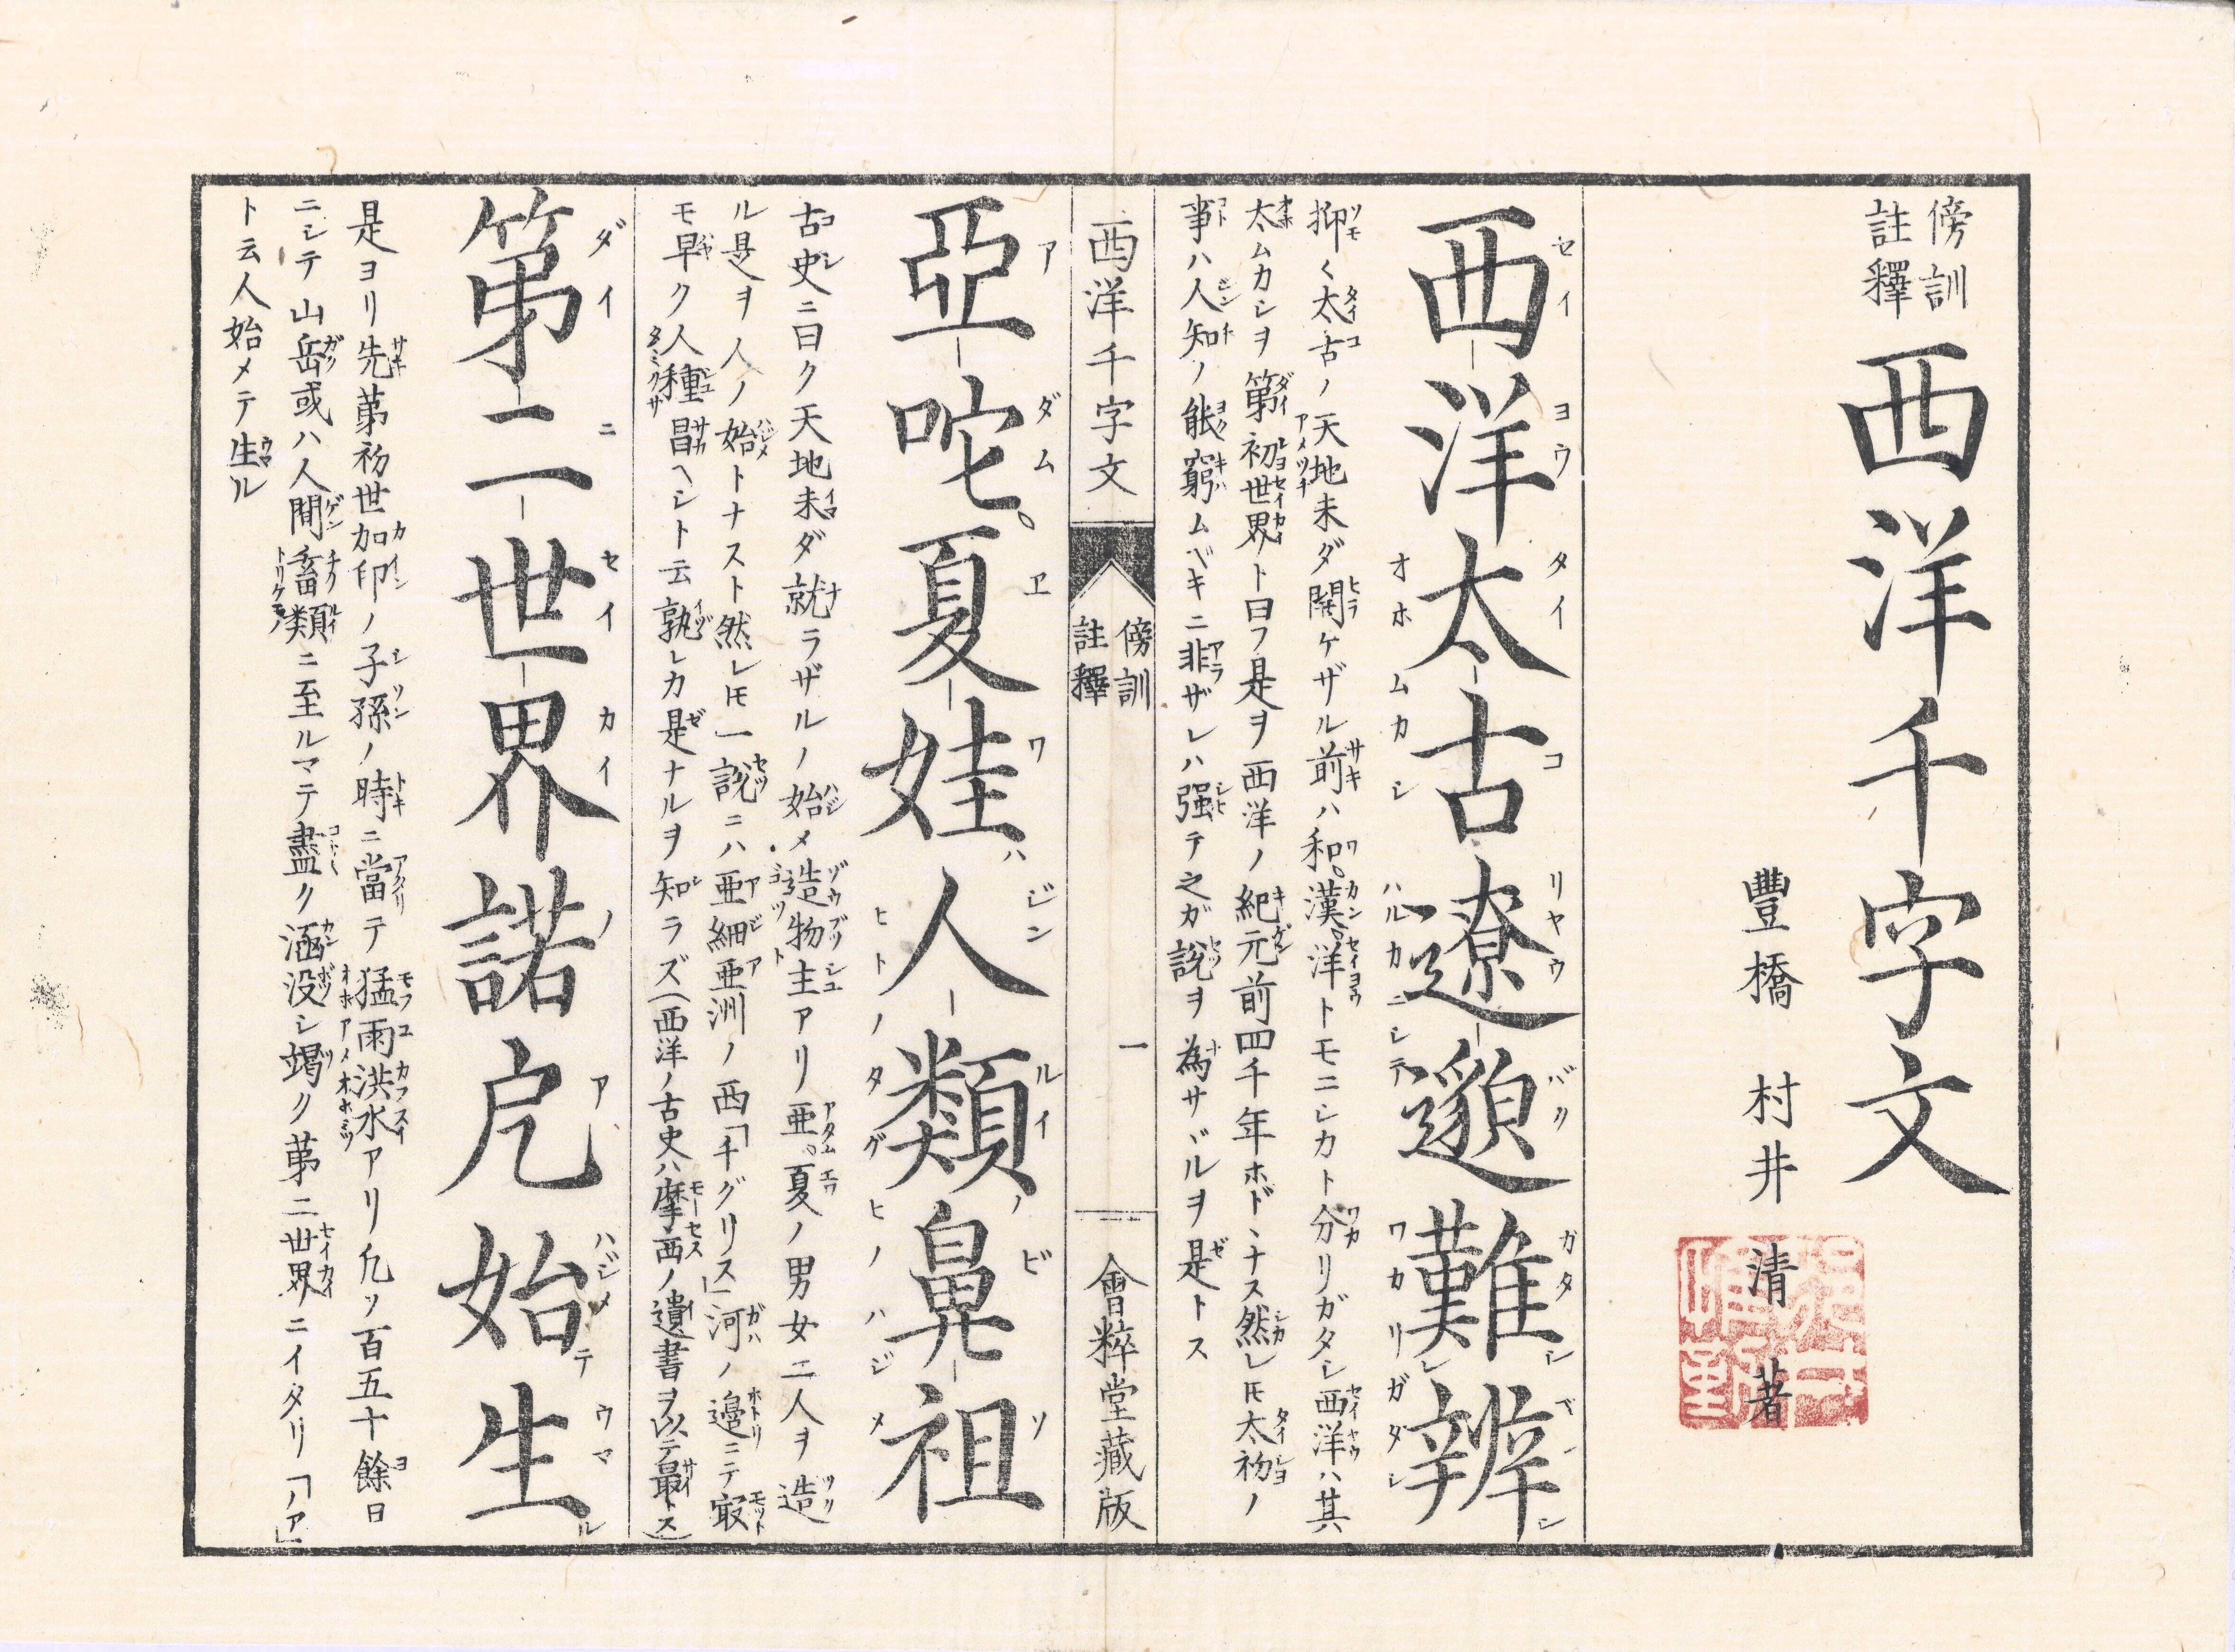 傍訓
註釋
西洋千字文
豐橋 村井 清 著
西洋太古遼邈難辨
抑〱太古ノ天地未ダ開ケザル前ハ和漢洋トモニシカト分リガタシ西洋ハ其
太ムカシヲ第初世界ト曰フ是ヲ西洋ノ紀元前四千年ホドヽナス然レ𪜈太初ノ
事ハ人知ノ能窮ムベキニ非ザレハ强テ之ガ說ヲ為サヾルヲ是トス
西洋千字文
傍訓
註釋
一
會粹堂藏版
亞咜夏娃人類鼻祖
古史ニ曰ク天地未ダ就ラザルノ始メ造物主アリ亜夏ノ男女二人ヲ造
ル是ヲ人ノ始トナスト然レ𪜈一說ニハ亜細亜洲ノ西「チグリス」河ノ邉ニテ㝡
モ早ク人種昌ヘシト云孰レカ是ナルヲ知ラズ(西洋ノ古史ハ摩西ノ遺書ヲ以テ最トス)
第二世界諾戹始生
是ヨリ先第初世加印ノ子孫ノ時ニ當テ猛雨洪水アリ凡ソ百五十餘日
ニシテ山岳或ハ人間畜類ニ至ルマテ盡ク涵没シ竭ク第二世界ニイタリ「ノア」
ト云人始メテ生ル